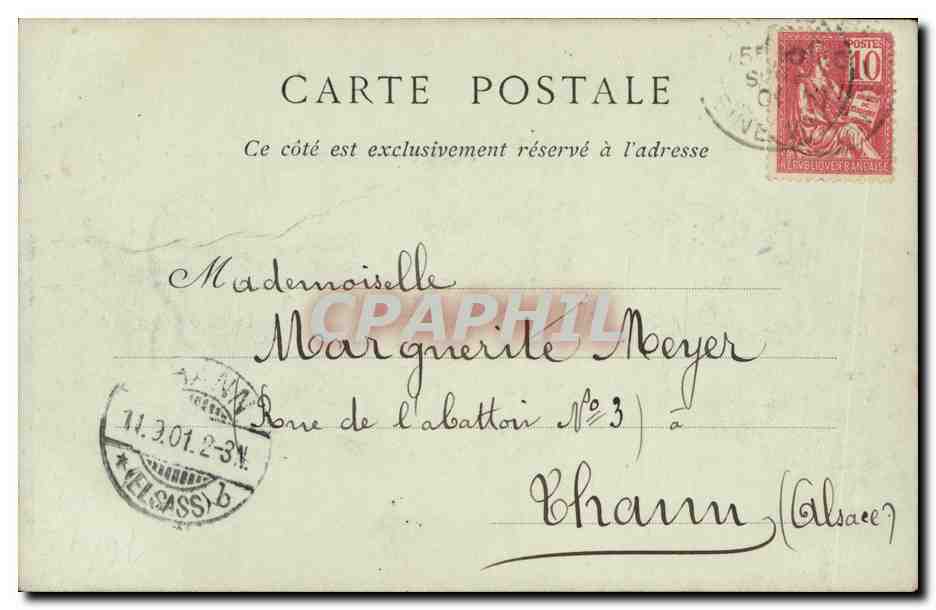 POSTES
10
REPUBLIQUE FRANÇAISE
CARTE POSTALE
Ce côté est exclusivement réservé à l'adresse
Mademoiselle
CPAPHIL
Marguerite Meyer
Rue de l'abattoir Nº 3) à
Thann (Alsace)
THANN
11.9.01.2-3N.
* (ELSASS) b